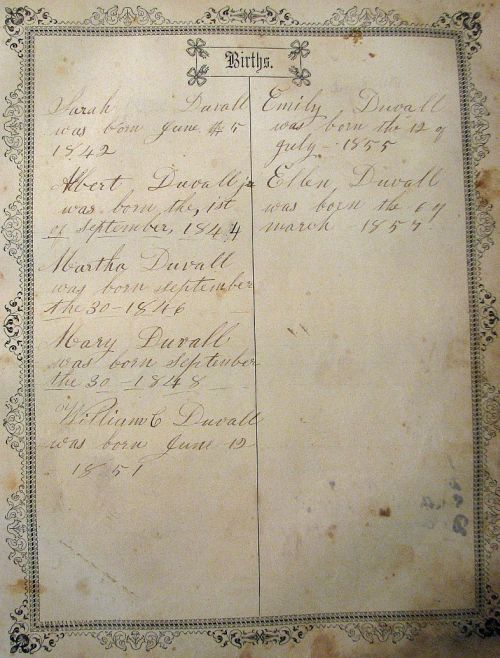 Births.
Sarah Duvall
was born June 5
1842
Albert Duvall jr
was born the 1st
of September, 1844
Martha Duvall
was born september
the 30 - 1846
Mary Duvall
was born september
the 30 - 1848
William C Duvall
was born June 12
1851
Emily Duvall
was born the 12 of
July - 1855
Ellen Duvall
was born the 6 of
march 1857